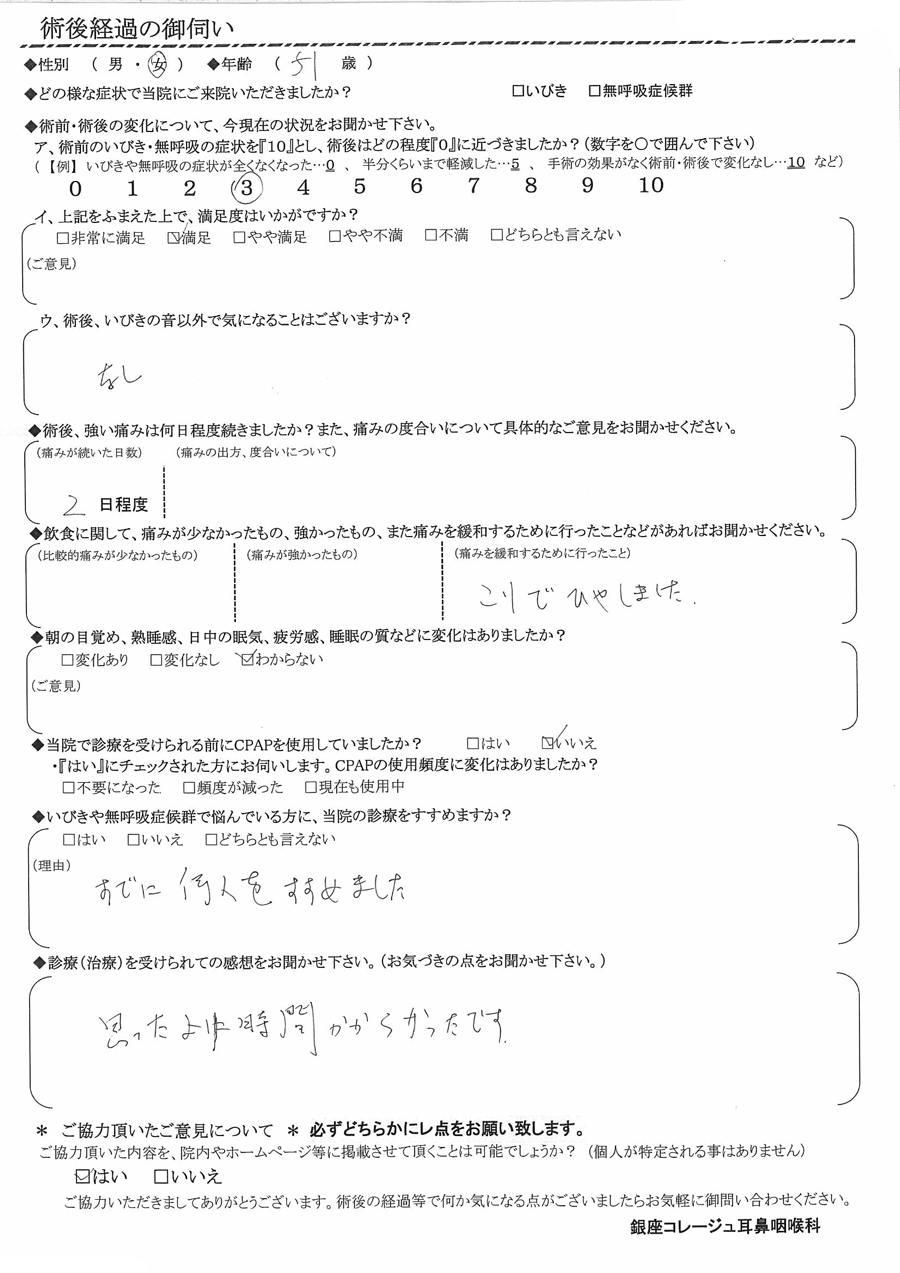 術後経過の御伺い
◆性別 ( 男 ・ 女 ) ◆年齢 ( 51 歳 )
◆どの様な症状で当院にご来院いただきましたか? □いびき □無呼吸症候群
◆術前・術後の変化について、今現在の状況をお聞かせ下さい。
ア、術前のいびき・無呼吸の症状を『10』とし、術後はどの程度『0』に近づきましたか?(数字を○で囲んで下さい)
(【例】いびきや無呼吸の症状が全くなくなった…0 、 半分くらいまで軽減した…5 、 手術の効果がなく術前・術後で変化なし…10 など)
0 1 2 3 4 5 6 7 8 9 10
イ、上記をふまえた上で、満足度はいかがですか?
□非常に満足 ☑満足 □やや満足 □やや不満 □不満 □どちらとも言えない
(ご意見)
ウ、術後、いびきの音以外で気になることはございますか?
なし
◆術後、強い痛みは何日程度続きましたか?また、痛みの度合いについて具体的なご意見をお聞かせください。
(痛みが続いた日数) (痛みの出方、度合いについて)
2 日程度
◆飲食に関して、痛みが少なかったもの、強かったもの、また痛みを緩和するために行ったことなどがあればお聞かせください。
(比較的痛みが少なかったもの) (痛みが強かったもの) (痛みを緩和するために行ったこと)
こりでひやしました.
◆朝の目覚め、熟睡感、日中の眠気、疲労感、睡眠の質などに変化はありましたか?
□変化あり □変化なし ☑わからない
(ご意見)
◆当院で診療を受けられる前にCPAPを使用していましたか? □はい ☑いいえ
・『はい』にチェックされた方にお伺いします。CPAPの使用頻度に変化はありましたか?
□不要になった □頻度が減った □現在も使用中
◆いびきや無呼吸症候群で悩んでいる方に、当院の診療をすすめますか?
□はい □いいえ □どちらとも言えない
(理由)
すでに 何人を すすめました
◆診療(治療)を受けられての感想をお聞かせ下さい。(お気づきの点をお聞かせ下さい。)
思ったより時間かからなかったです.
* ご協力頂いたご意見について * 必ずどちらかにレ点をお願い致します。
ご協力頂いた内容を、院内やホームページ等に掲載させて頂くことは可能でしょうか? (個人が特定される事はありません)
☑はい □いいえ
ご協力いただきましてありがとうございます。術後の経過等で何か気になる点がございましたらお気軽に御問い合わせください。
銀座コレージュ耳鼻咽喉科